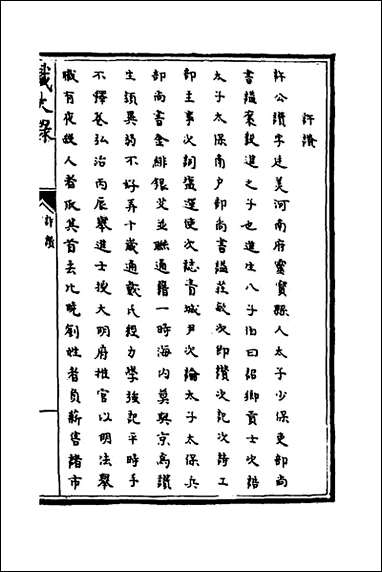 許讚
許公讚字廷美河南府靈寶縣人太子少保吏部尚
書謚襄毅進之子也進生八子伯曰詔鄉貢士次誥
太子太保南戶部尚書謚莊敏次即讚次記次詩工
部主事次詞鹽運使次誌青城尹次論太子太保兵
部尚書金緋銀艾並聯通籍一時海内莫與京焉讚
生頭異弱不好弄十歲通戴氏授力學強記平時手
不釋卷弘治丙辰舉進士授大明府推官以明法舉
職有夜殺人者取其首去比曉劉姓者負薪售諸市
許讚